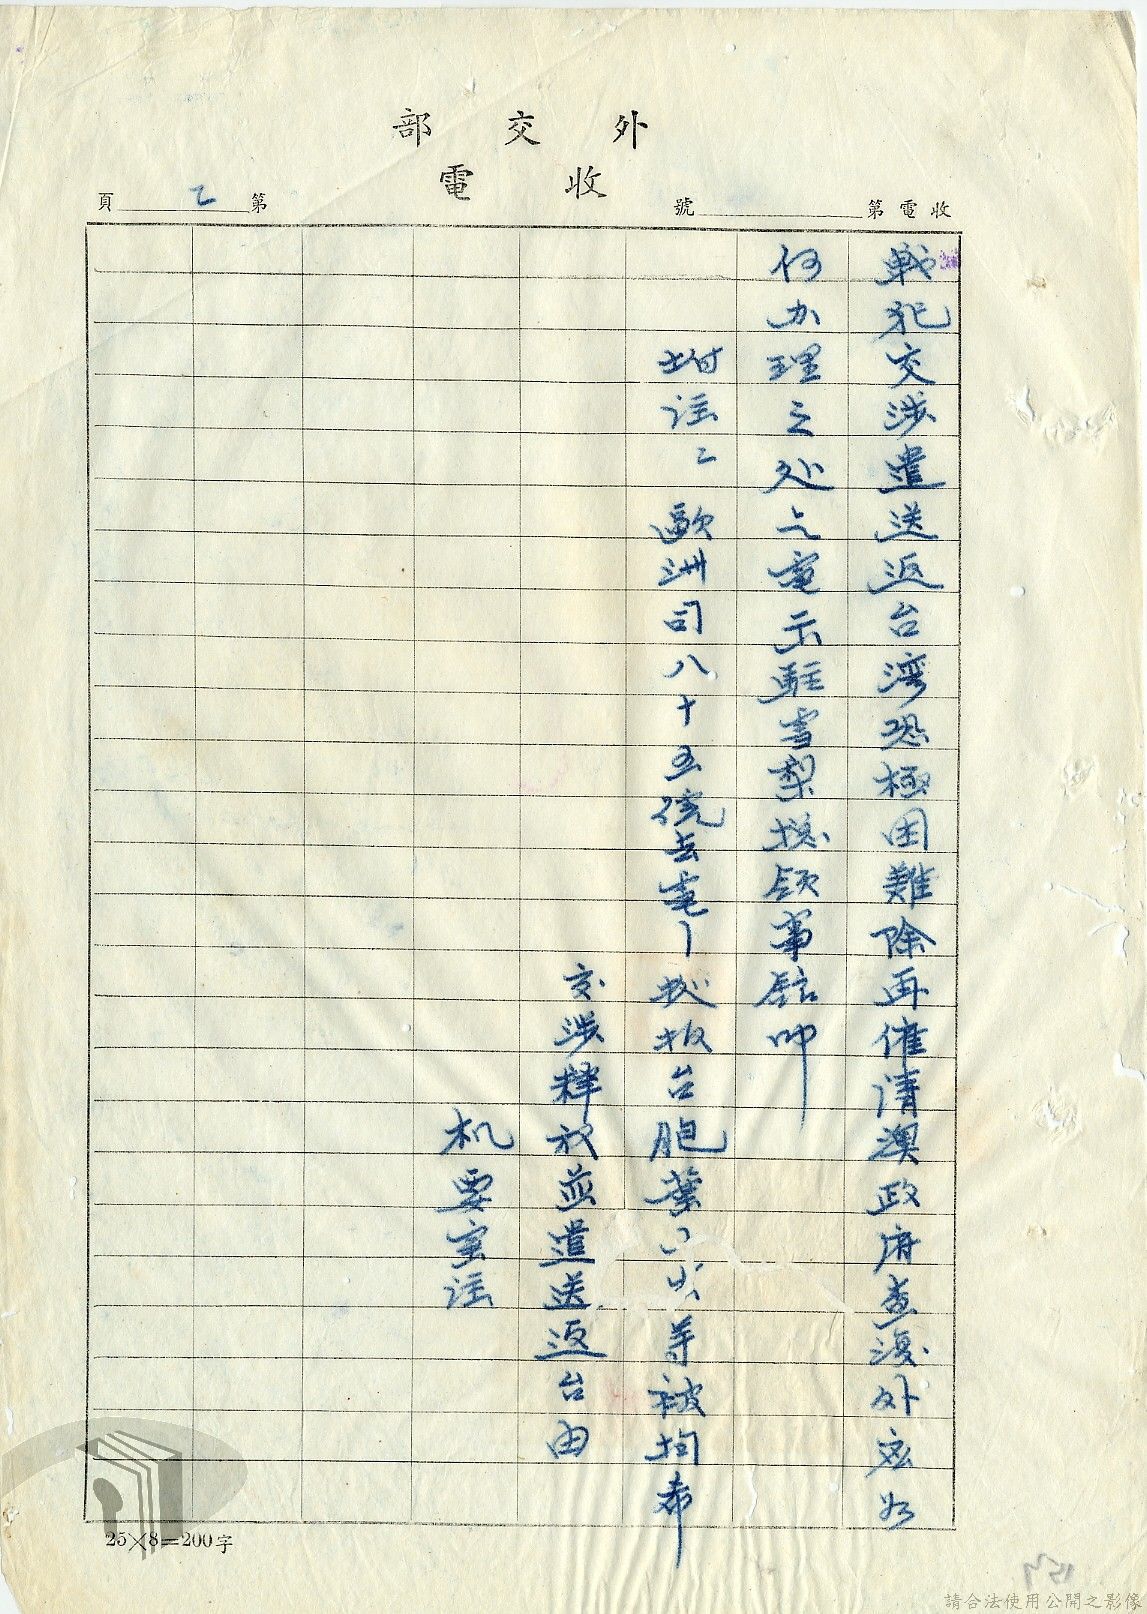 外交部
收電
收電第　　號
第 2 頁
戰犯交涉遣送返台灣恐極困難除再催請澳政府查復外究如
何办理之处乞電示駐雪梨總領事館叩
附註: 歐洲司八十五號去電—據报台胞葉 等被拘希
交涉釋放並遣送返台由
机要室註
25×8=200字
請合法使用公開之影像